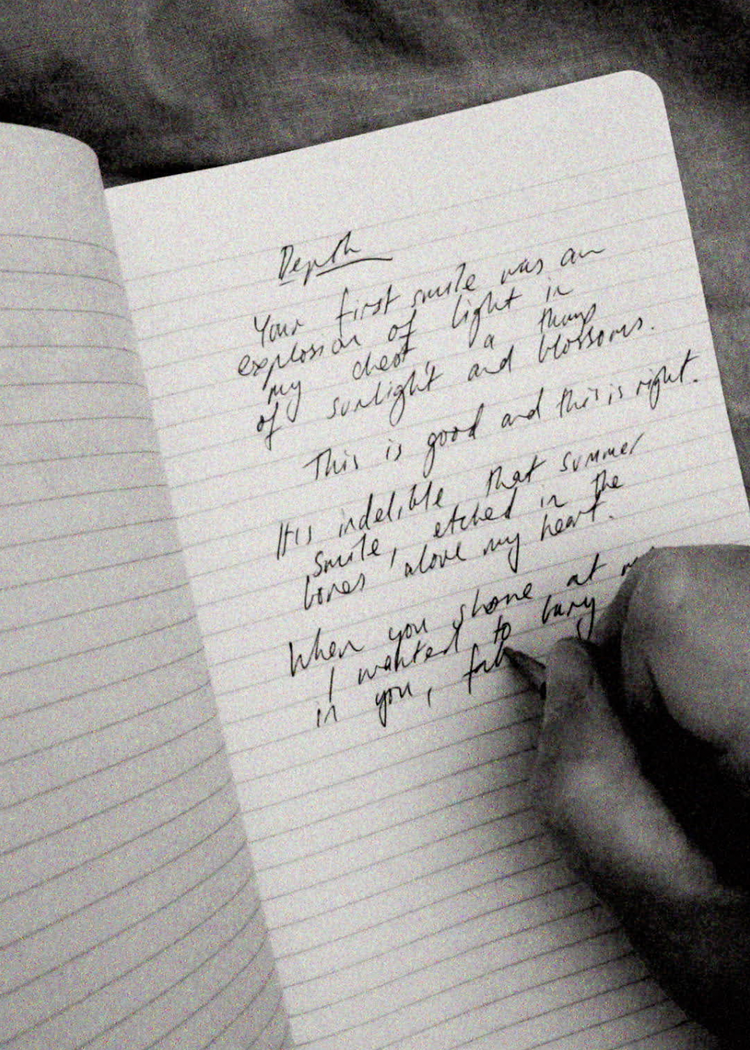 Depth
Your first smile was an
explosion of light in
my chest, a thump
of sunlight and blossoms.
This is good and this is right.
It is indelible that summer
smile, etched in the
bones above my heart.
When you shone at
I wanted to bury
in you,